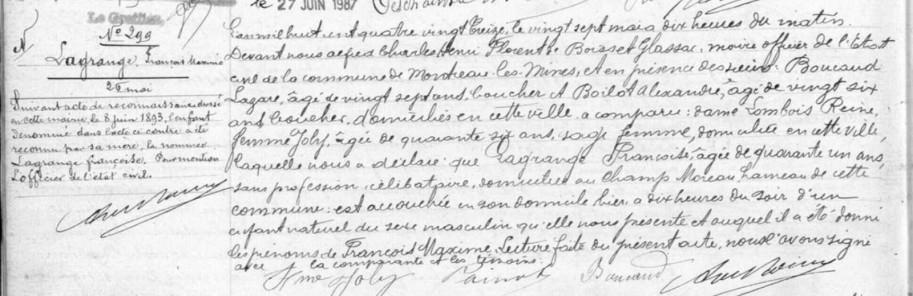 Le Greffier,
le 27 JUIN 1987
N° 299
Lagrange, François Maxime
26 mai
Suivant acte de reconnaissance dressé
en cette mairie, le 8 juin 1893, l'enfant
dénommé dans l'acte ci contre a été
reconnu par sa mère, la nommée
Lagrange françoise. Pour mention
L'officier de l'état civil.
L'an mil huit cent quatre vingt treize, le vingt sept mai à dix heures du matin.
Devant nous Alfred Charles Henri Florent de Boisset Glassac, maire officier de l'Etat
civil de la commune de Montceau-les-Mines, et en présence des sieurs Boucaud
Lazare, âgé de vingt sept ans, boucher et Boilot Alexandre, âgé de vingt six
ans, boucher, domiciliés en cette ville, a comparu: dame Lombois Reine,
femme Joly, âgée de quarante six ans, sage femme, domiciliée en cette ville,
laquelle nous a déclaré: que Lagrange Françoise, âgée de quarante un ans,
sans profession, célibataire, domiciliée au Champ Moreau, hameau de cette
commune: est accouchée en son domicile hier, à dix heures du soir d'un
enfant naturel du sexe masculin qu'elle nous présente et auquel il a été donné
les prénoms de François Maxime. Lecture faite du présent acte, nous l'avons signé
avec la comparante et les témoins.
Fme Joly Boucaud